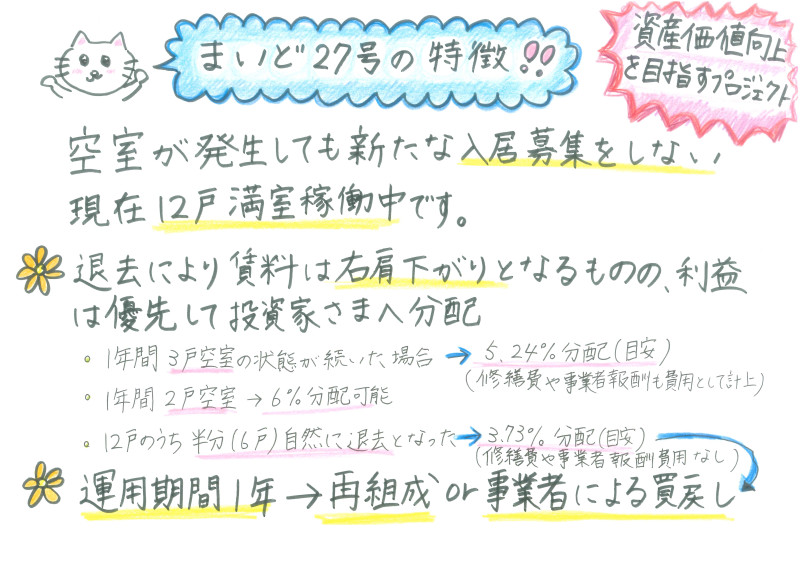 まいど27号の特徴!!
資産価値向上
を目指すプロジェクト
空室が発生しても新たな入居募集をしない
現在12戸満室稼働中です。
退去により賃料は右肩下がりとなるものの、利益
は優先して投資家さまへ分配
1年間3戸空室の状態が続いた場合→5.24%分配(目安)
(修繕費や事業者報酬も費用として計上)
1年間2戸空室→6%分配可能
12戸のうち半分(6戸)自然に退去となった→3.73%分配(目安)
(修繕費や事業者報酬費用なし)
運用期間1年→再組成or事業者による買戻し